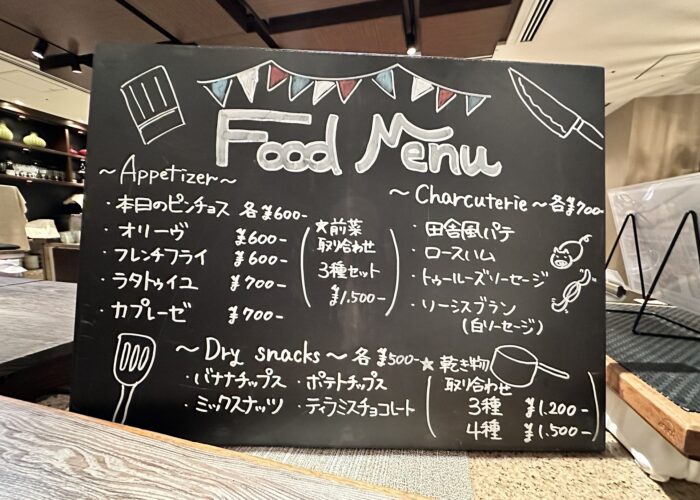 Food Menu
～Appetizer～
・本日のピンチョス 各¥600-
・オリーヴ ¥600-
・フレンチフライ ¥600-
・ラタトゥイユ ¥700-
・カプレーゼ ¥700-
★前菜
取り合わせ
3種セット
¥1.500-
～Charcuterie～各¥700-
・田舎風パテ
・ロースハム
・トゥールーズソーセージ
・ソーシスブラン
(白ソーセージ)
～Dry snacks～各¥500-
・バナナチップス ・ポテトチップス
・ミックスナッツ ・ティラミスチョコレート
★乾き物
取り合わせ
3種 ¥1.200-
4種 ¥1.500-